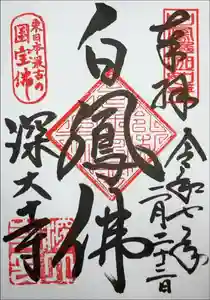 奉拝
令和七年
二月二十三日
白鳳佛
東日本最古の
国宝佛
深大寺